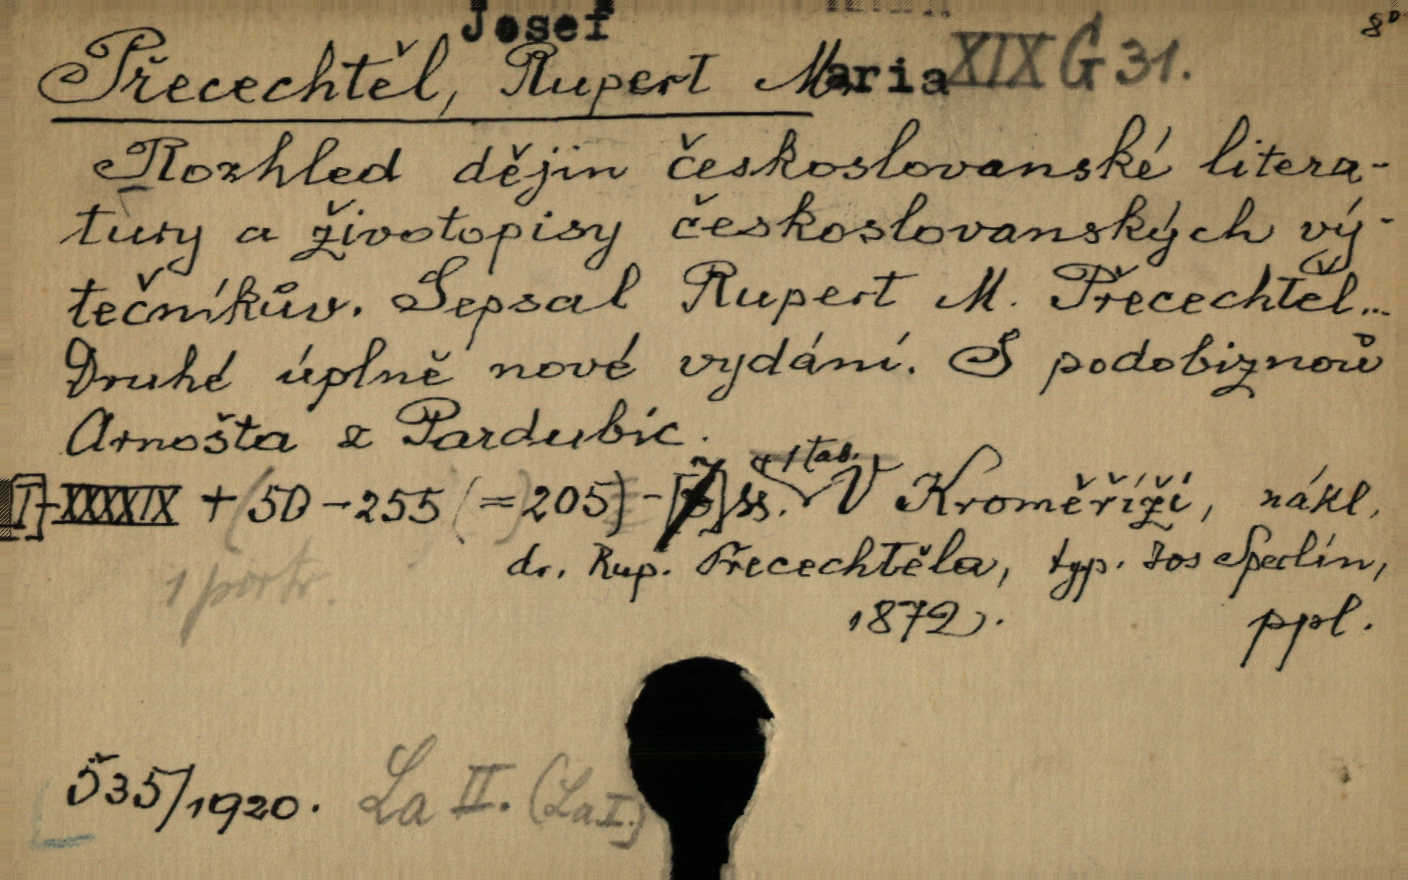 Josef
8°
Přecechtěl, Rupert Maria XIX G 31.
Rozhled dějin českoslovanské litera-
tury a životopisy českoslovanských vý-
tečníkův. Sepsal Rupert M. Přecechtěl...
Druhé úplně nové vydání. S podobiznou
Arnošta z Pardubic.
+ 1 tab.
[I]-XXXXIX + (50-255 (=205) - ss. V Kroměříži, nákl.
1 portr.
dr. Rup. Přecechtěla, typ. Jos Sperlín,
1872. ppl.
535/1920. La II. (La I.)